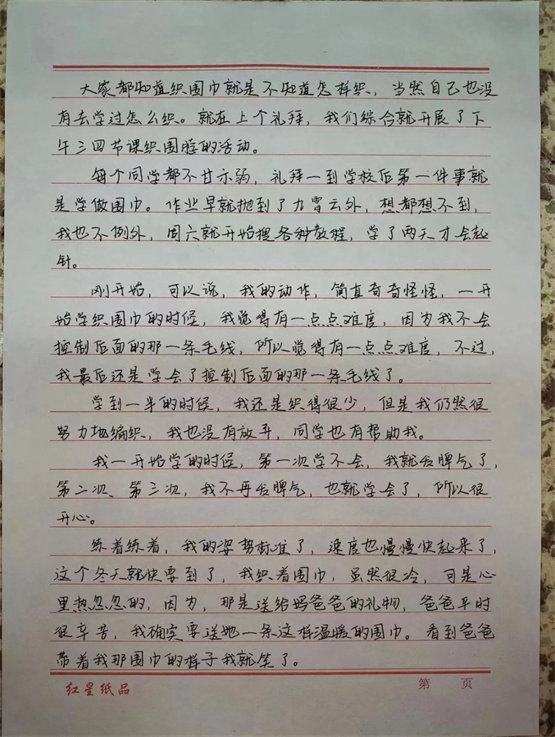 大家都知道织围巾就是不知道怎样织，当然自己也没
有去学过怎么织。就在上个礼拜，我们综合就开展了下
午三四节课织围脖的活动。
每个同学都不甘示弱，礼拜一到学校后第一件事就
是学做围巾。作业早就抛到了九霄云外，想都想不到，
我也不例外，周六就开始搜各种教程，学了两天才会起
针。
刚开始，可以说，我的动作，简直奇奇怪怪，一开
始学织围巾的时候，我觉得有一点点难度，因为我不会
控制后面的那一条毛线，所以觉得有一点点难度，不过，
我最后还是学会了控制后面的那一条毛线了。
学到一半的时候，我还是织得很少，但是我仍然很
努力地编织，我也没有放弃，同学也有帮助我。
我一开始学的时候，第一次学不会，我就发脾气了，
第二次、第三次，我不再发脾气，也就学会了，所以很
开心。
练着练着，我的姿势标准了，速度也慢慢快起来了，
这个冬天就快要到了，我织着围巾，虽然很冷，可是心
里热忽忽的，因为，那是送给妈爸爸的礼物，爸爸平时
很辛苦，我确实要送他一条这样温暖的围巾。看到爸爸
带着我那围巾的样子我就笑了。
红星纸品 第 页